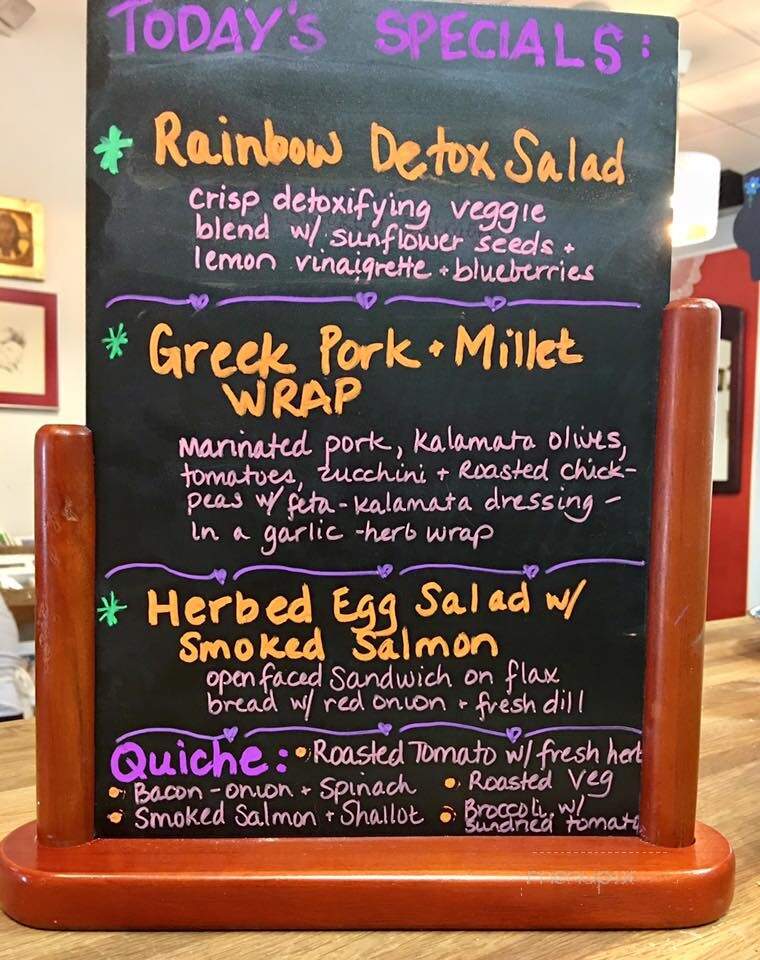 TODAY'S SPECIALS:
* Rainbow Detox Salad
crisp detoxifying veggie
blend w/ sunflower seeds +
lemon vinaigrette + blueberries
* Greek Pork + Millet
WRAP
marinated pork, kalamata olives,
tomatoes, zucchini + Roasted chick-
peas w/ feta-kalamata dressing -
In a garlic-herb wrap
* Herbed Egg Salad w/
Smoked Salmon
open faced Sandwich on flax
bread w/ red onion + fresh dill
Quiche: • Roasted Tomato w/ fresh herb
• Bacon-onion + Spinach • Roasted Veg
• Smoked Salmon + Shallot • Broccoli w/
sundried tomato
menupix